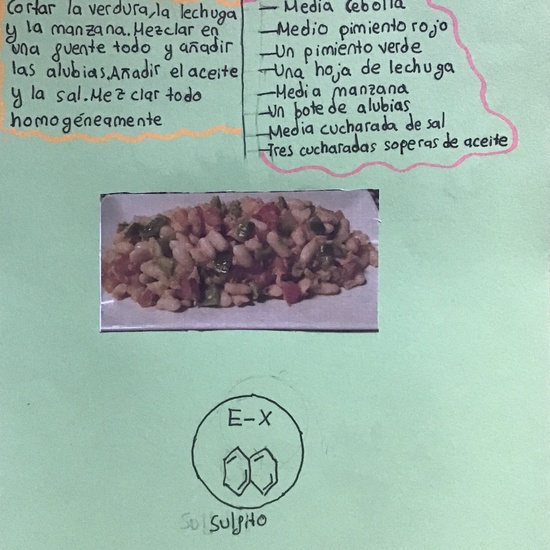 Cortar la verdura, la lechuga
y la manzana. Mezclar en
una fuente todo y añadir
las alubias. Añadir el aceite
y la sal. Mezclar todo
homogéneamente
— Media cebolla
— Medio pimiento rojo
— Un pimiento verde
— Una hoja de lechuga
— Media manzana
— Un bote de alubias
— Media cucharada de sal
— Tres cucharadas soperas de aceite
E-X
Sulfito